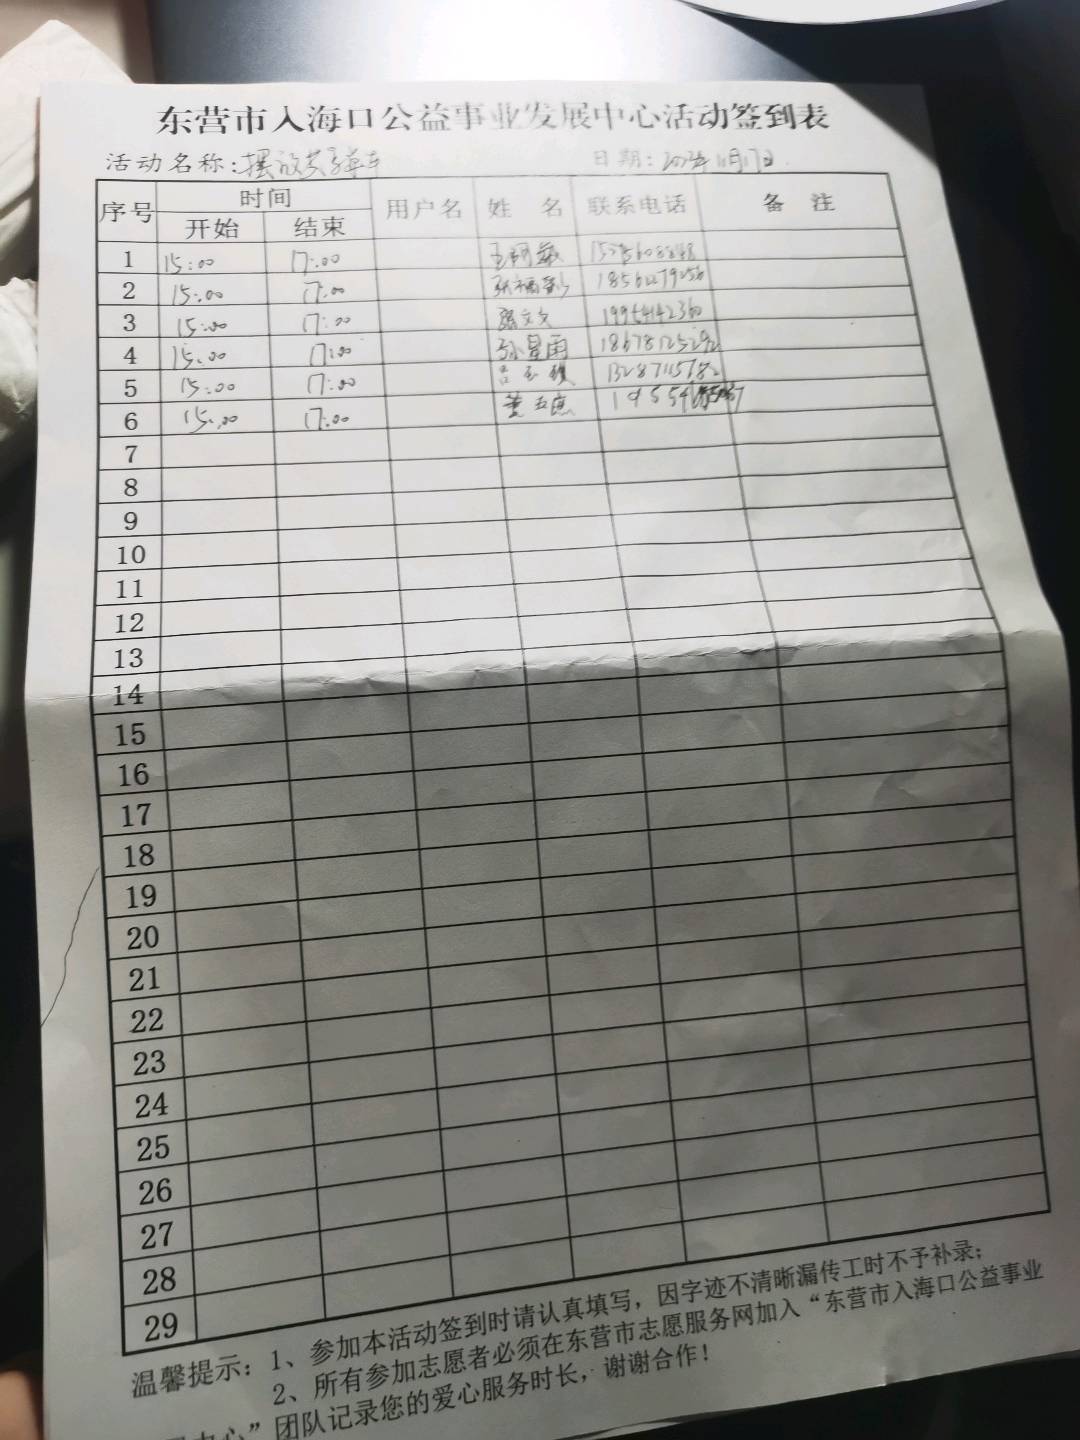 东营市入海口公益事业发展中心活动签到表
活动名称：摆放共享单车 日期：2023年11月17日
序号 时间 用户名 姓 名 联系电话 备 注
开始 结束
1 15:00 17:00
2 15:00 17:00 18562279256
3 15:00 17:00 孫文文 19954142360
4 15:00 17:00 孙星雨
5 15:00 17:00 吕玉镇 13287115782
6 15:00 17:00 董五 19554
7
8
9
10
11
12
13
14
15
16
17
18
19
20
21
22
23
24
25
26
27
28
29
温馨提示：1、参加本活动签到时请认真填写，因字迹不清晰漏传工时不予补录；
2、所有参加志愿者必须在东营市志愿服务网加入“东营市入海口公益事业
中心”团队记录您的爱心服务时长，谢谢合作！